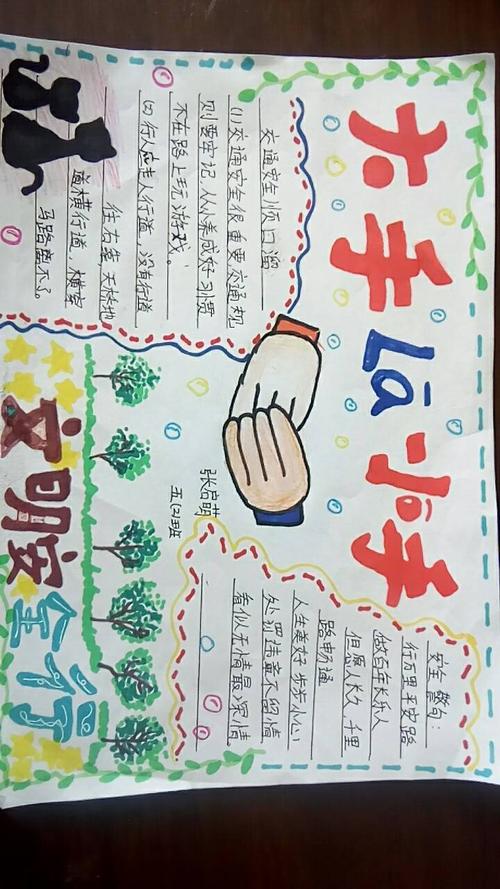 大手lā小手
交通安全顺口溜:
(1)交通安全很重要,交通规
则要牢记,从小养成好习惯
不在路上玩游戏。
(2)行人应走人行道,没有行道
往右靠,天桥地
道横行道,横穿
马路离不了。
安全警句:
行万里平安路
做百年长乐人
但愿人长久,千里
路畅通
人生美好 步步小心
处罚违章不留情
看似无情最深情
张启萌
五(2)班
文明安全行